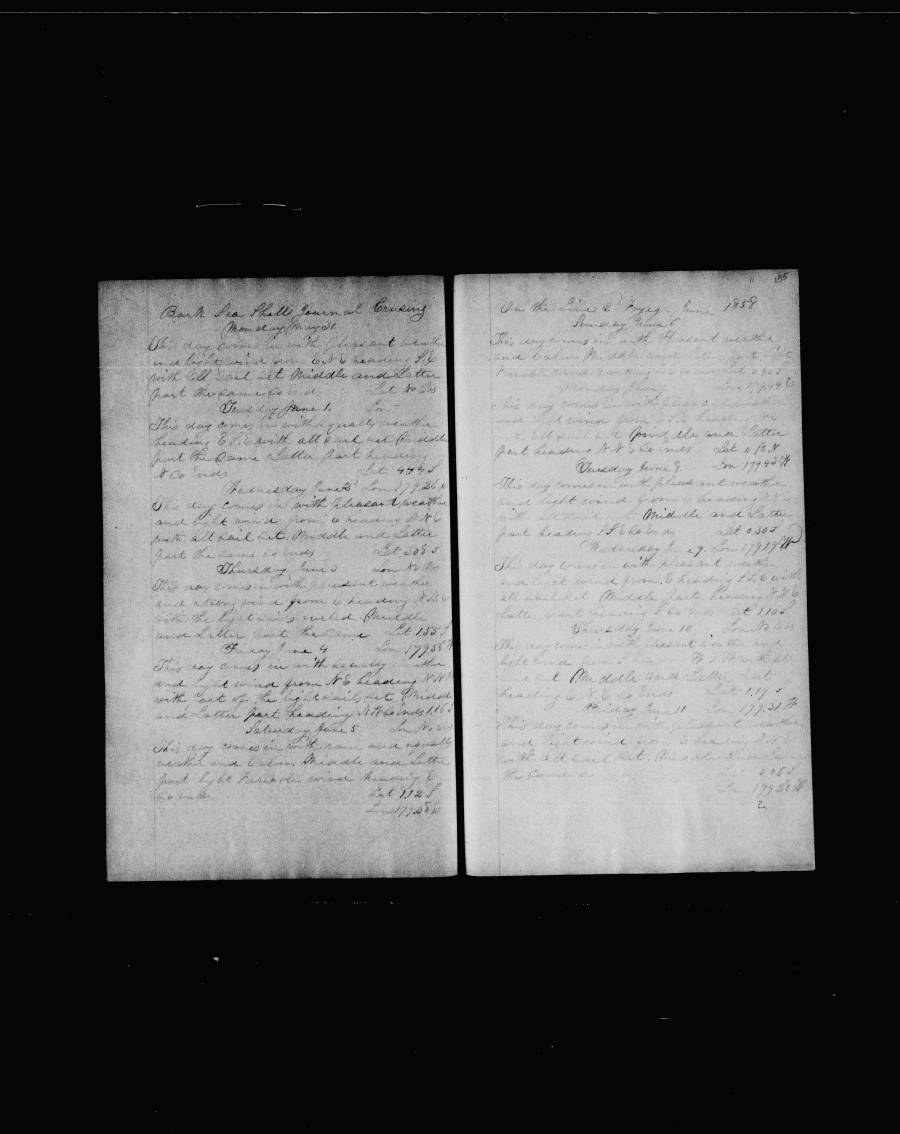 Bark Sea Shells Journal Crusing
Monday May 31
This day comes in with pleasant weather
and light wind from E N E heading S. E
with all sail set Middle and Latter
part the same So Ends Lat No Obs
Tuesday June 1. Lon
This day comes in with squally weather
heading E S. E with all sail set Middle
part the Same Latter part heading
N So Ends Lat 4 44 S
Wednesday June 2 Lon 179.26
This day comes in with pleasant weather
and light wind from E heading N N E
with all sail set. Middle and Latter
part the same So Ends Lat 3.08 S
Thursday June 3 Lon No Obs
This day comes in with pleasant weather
and strong wind from E heading N N E
with the light sails furled Middle
and Latter part the same Lat 1.55 S
Friday June 4 Lon 179.56 W
This day comes in with squally weather
and light wind from N E heading N N W
with part of the light sail set Middle
and Latter part heading N W So Ends 1.16 S
Saturday June 5 Lon No Obs
This day comes in with rain and squally
weather and Calm. Middle and Latter
part light Variable wind heading E
So ends. Lat 1.12 S
Lon 179.58 E
35
On the Line 2d Voyage June 1858
Sunday June 6
This day comes in with Pleasant weather
and Calm Middle and Latter part light
Variable wind So Ends Lat 0.40 S
Monday June 7 Lon 179.44
This day comes in with pleasant weather
and light wind from heading N E
with all sail set Middle and Latter
part heading N N E So ends Lat 0.18 N
Tuesday June 8. Lon 179 43 W
This day comes in with pleasant weather
and light wind from E heading
with all sail Middle and Latter
part heading S S E So Ends Lat 0.30 S
Wednesday June 9. Lon 179 19 W
This day comes in with pleasant weather
and light wind from E heading S S. E with
all sail set Middle part heading N N E
Latter part heading S So Ends Lat 1.10 S
Thursday June 10 Lon No Obs
This day comes in with pleasant weather and
light wind from W S W with all
sail set Middle and Latter part
heading E. N. E So Ends Lat 1.19 S
Friday June 11 Lon 179.31 W
This day comes in with pleasant weather
and light wind from E heading N N E
with all sail set. Middle and Latter
the Same Lat 0.06 S
Lon 179 50 W
2